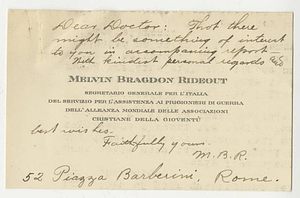 Dear Doctor: Thot there
might be something of interest
to you in accompaning report—
With kindest personal regards and
MELVIN BRAGDON RIDEOUT
SEGRETARIO GENERALE PER L'ITALIA
DEL SERVIZIO PER L'ASSISTENZA AI PRIGIONIERI DI GUERRA
DELL'ALLEANZA MONDIALE DELLE ASSOCIAZIONI
CRISTIANE DELLA GIOVENTÙ
best wishes.
Faithfully yours.
M.B.R.
52 Piazza Barberini, Rome.